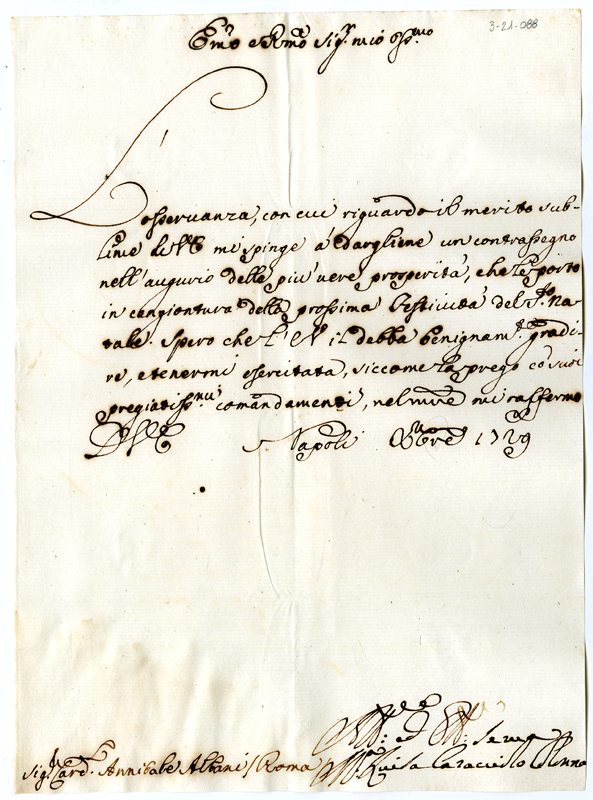 3-21-088
Em̃o e Rm̃o Sig.r mio oss.mo
L'osservanza, con cui riguardo il merito sub-
lime di V.E. mi spinge á dargliene un contrassegno
nell'augurio delle piú vere prosperitá, che le porto
in congiontura della prossima festivitá del S.to Na-
tale. Spero che l'E.V. il debba benignam.te gradi-
re, e tenermi esercitata, siccome la prego co' suoi
pregiatiss.mi comandamenti, nel mentre mi raffermo
Napoli 1729
Sig.r Card.l Annibale Albani / Roma
Luisa Caracciolo